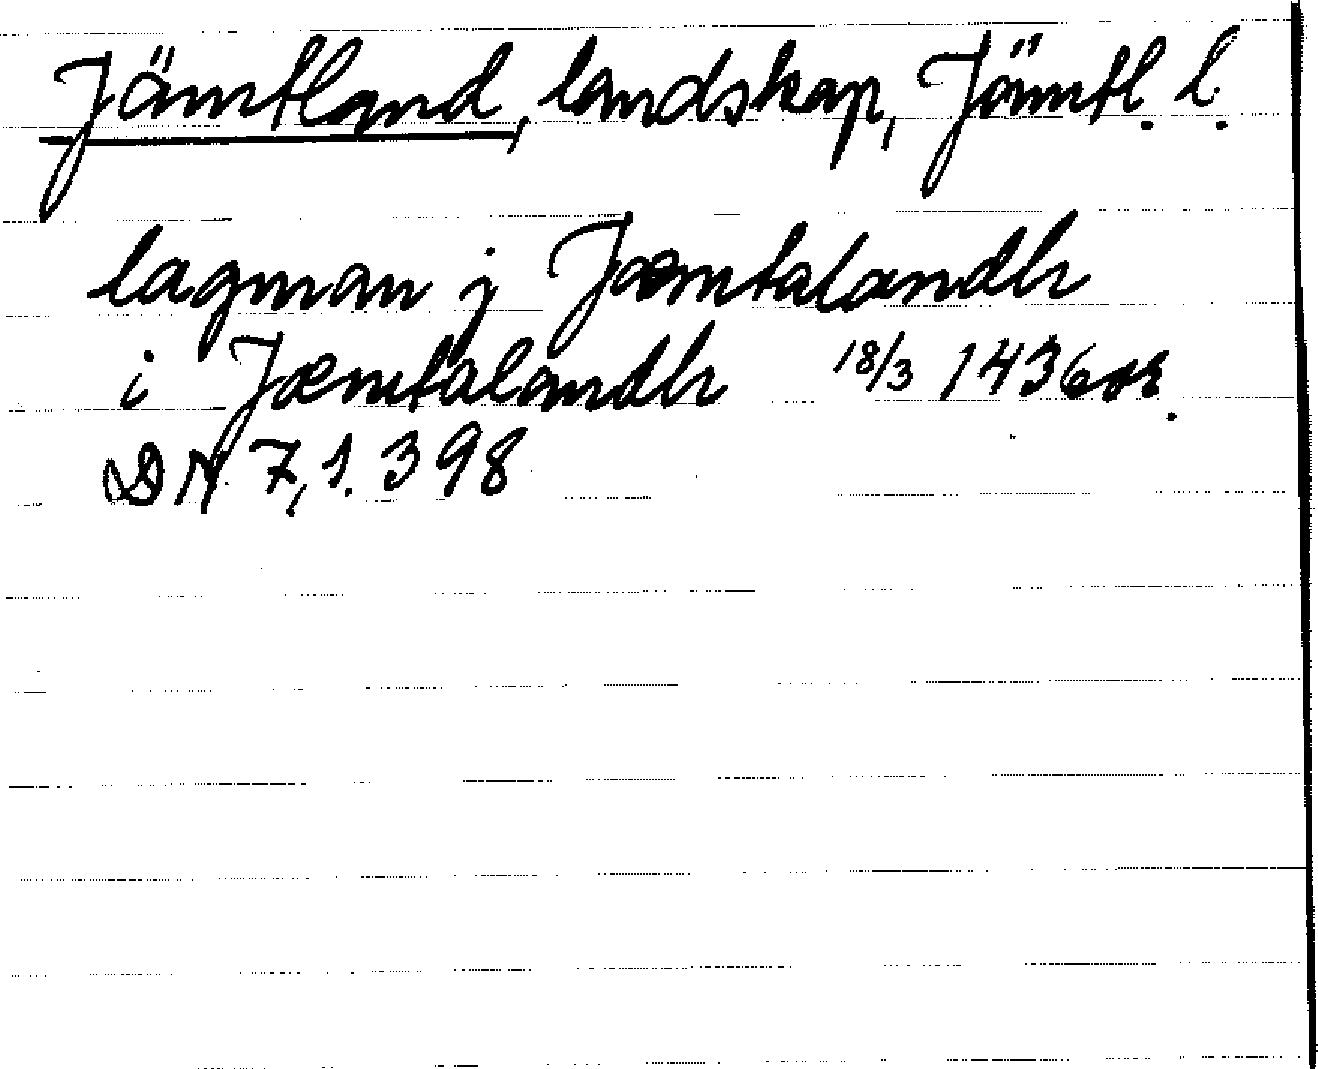 Jämtland, landskap, Jämtl. l.
lagman j Jæmtalandh
i Jæmtalandh 18/3 1436 or.
DN 7, 1. 398